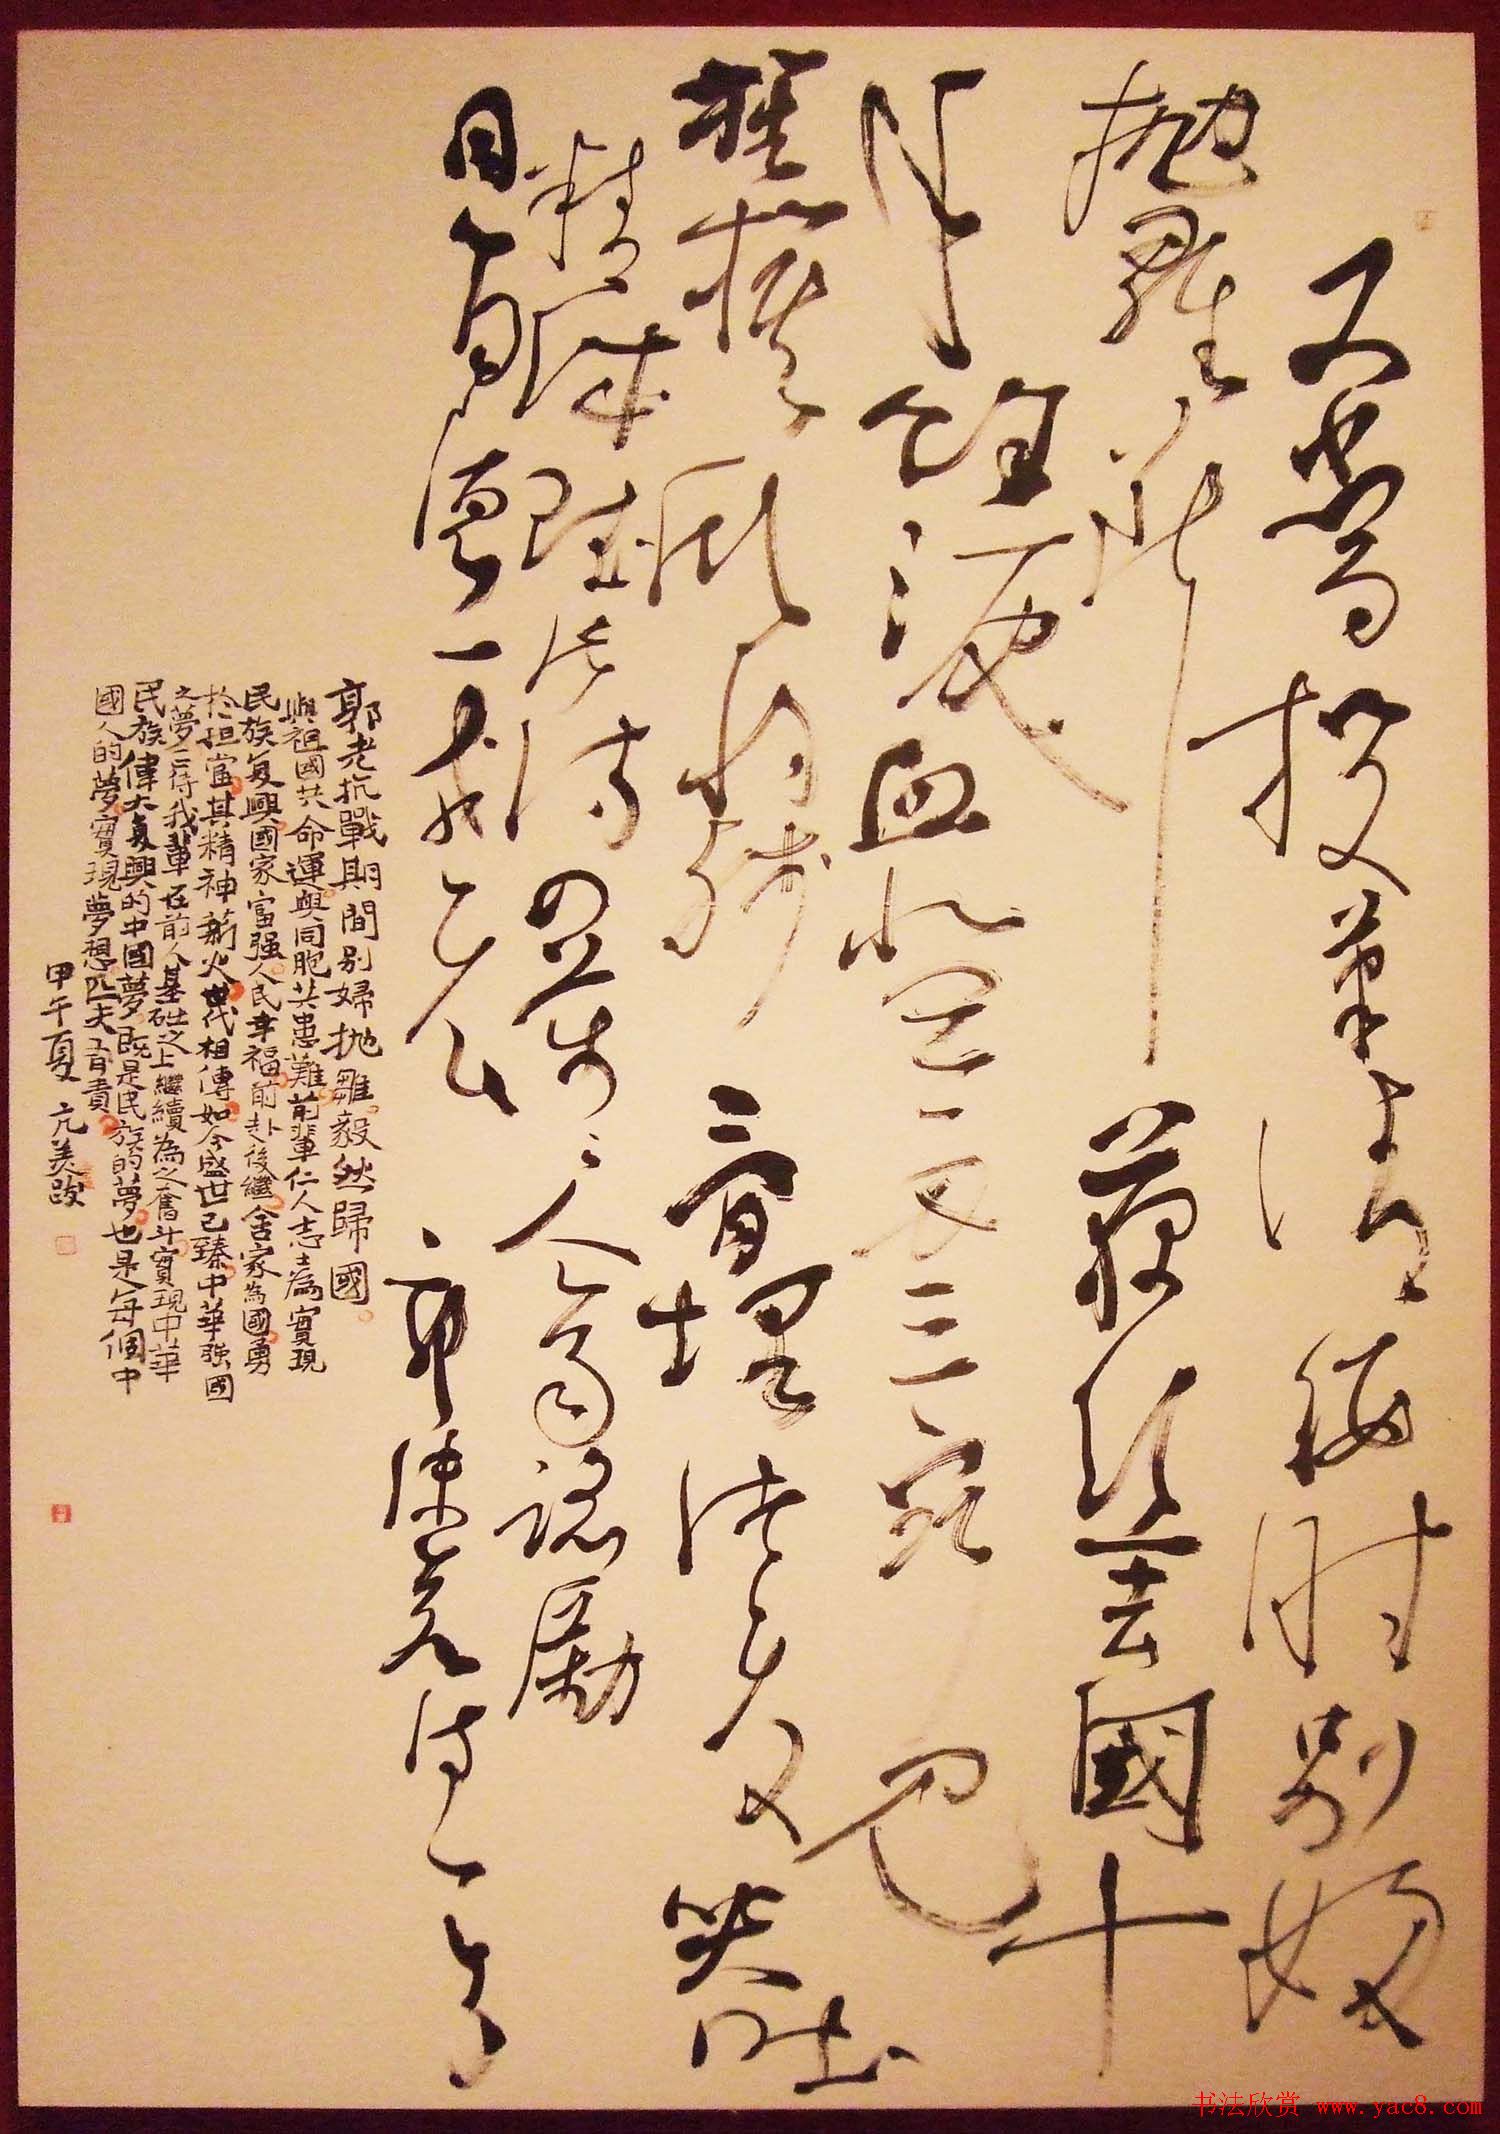 又當投筆請纓時別婦
拋雛斷藕絲去國十
年餘淚血登舟三宿見
旌旗欣將殘骨埋諸夏哭吐
精誠賦此詩四萬〻人齊蹈勵
同心同德一戎衣 郭沫若詩一首
郭老抗戰期間别婦抛雛。毅然歸國。
與祖國共命運與同胞共患難。前輩仁人志士為實現
民族复興。國家富强。人民幸福。前赴後繼。舍家為國。勇
於担當。其精神薪火世代相傳。如今盛世已臻。中華强國
之夢待我輩在前人基础之上繼續為之奮斗。實現中華
民族偉大复興的中國夢。既是民族的夢。也是每個中
國人的夢。實現夢想。匹夫有責。
甲午夏 亢美跋
书法欣赏 www.yac8.com